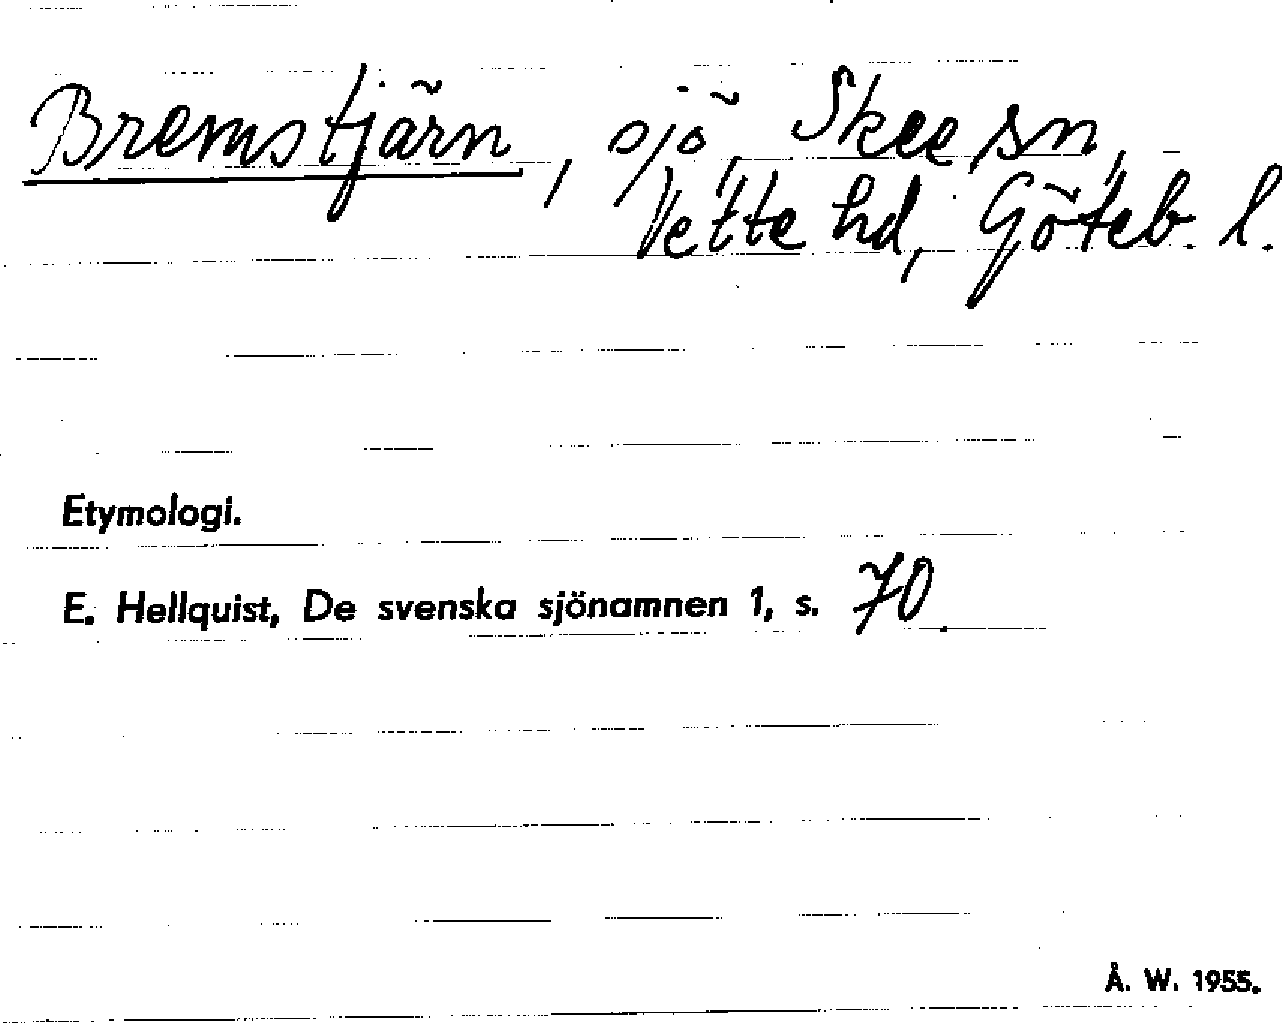 Bremstjärn, sjö, Skee sn,
Vette hd, Göteb. l.
Etymologi.
E. Hellquist, De svenska sjönamnen 1, s. 70
Å. W. 1955.